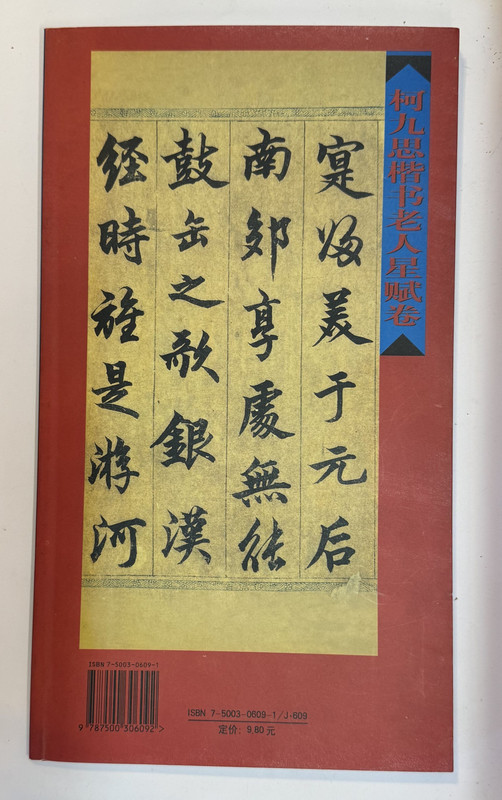 柯九思楷书老人星赋卷
寔歸美于元后
南郊享處無能
鼓缶之歌銀漢
經時雖是游河
ISBN 7-5003-0609-1
9 787500 306092>
ISBN 7-5003-0609-1/J·609
定价: 9.80 元